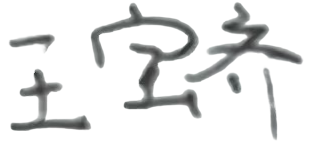 王宝齐